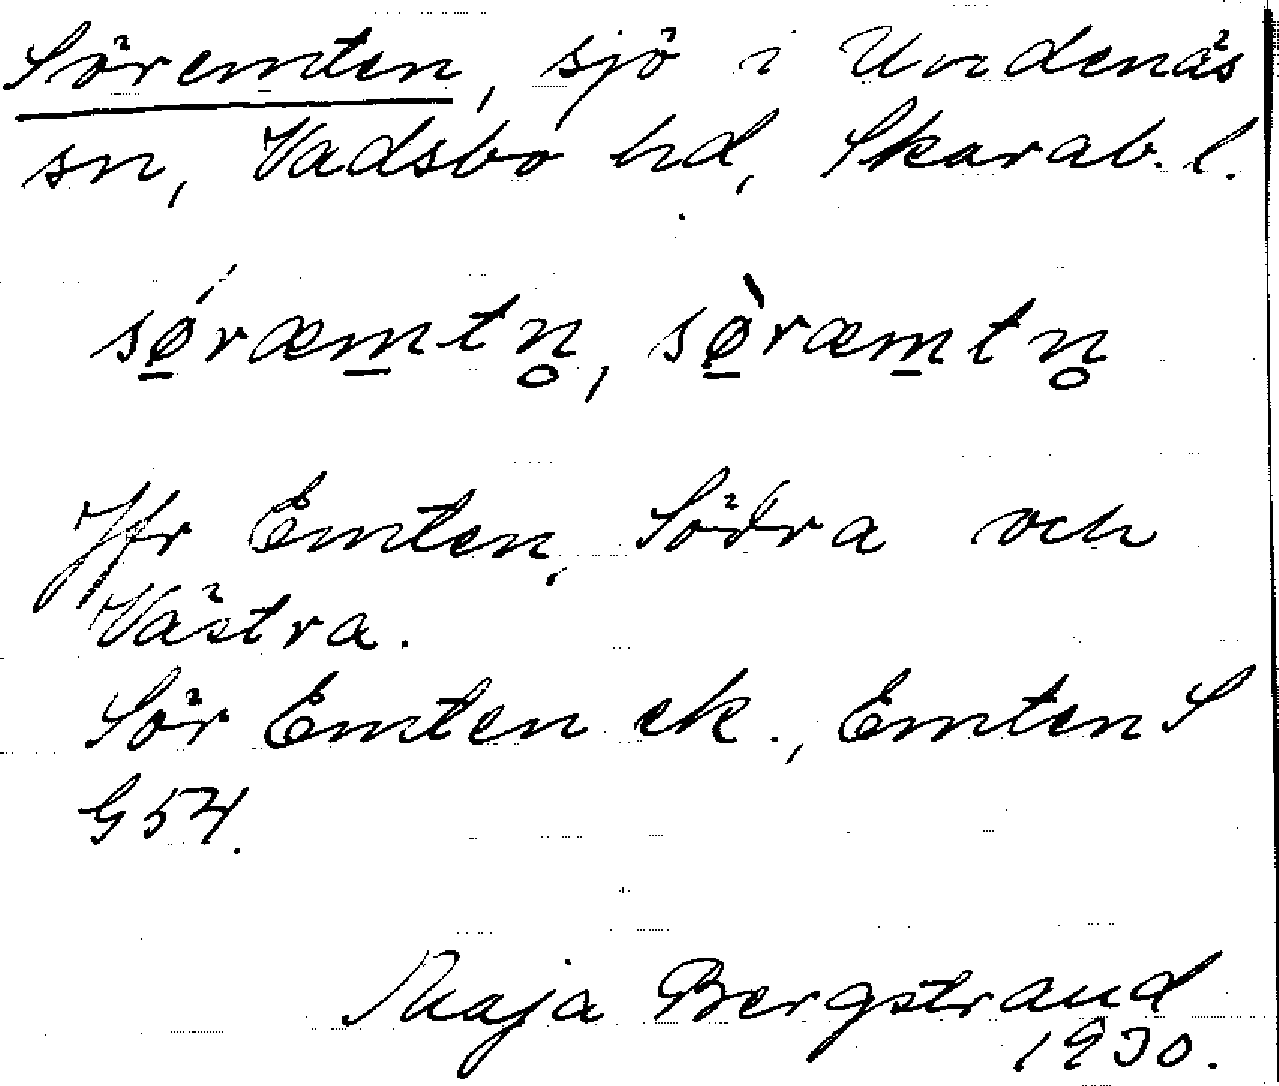 Söremten, sjö i Undenäs
sn, Vadsbo hd, Skarab. l.
sǿ̱ræm̱tn̥, sø̱̀ræm̱tn̥
Jfr Emten, Södra och
Västra.
Sör Emten ek., Emten S
G 54.
Maja Bergstrand
1930.